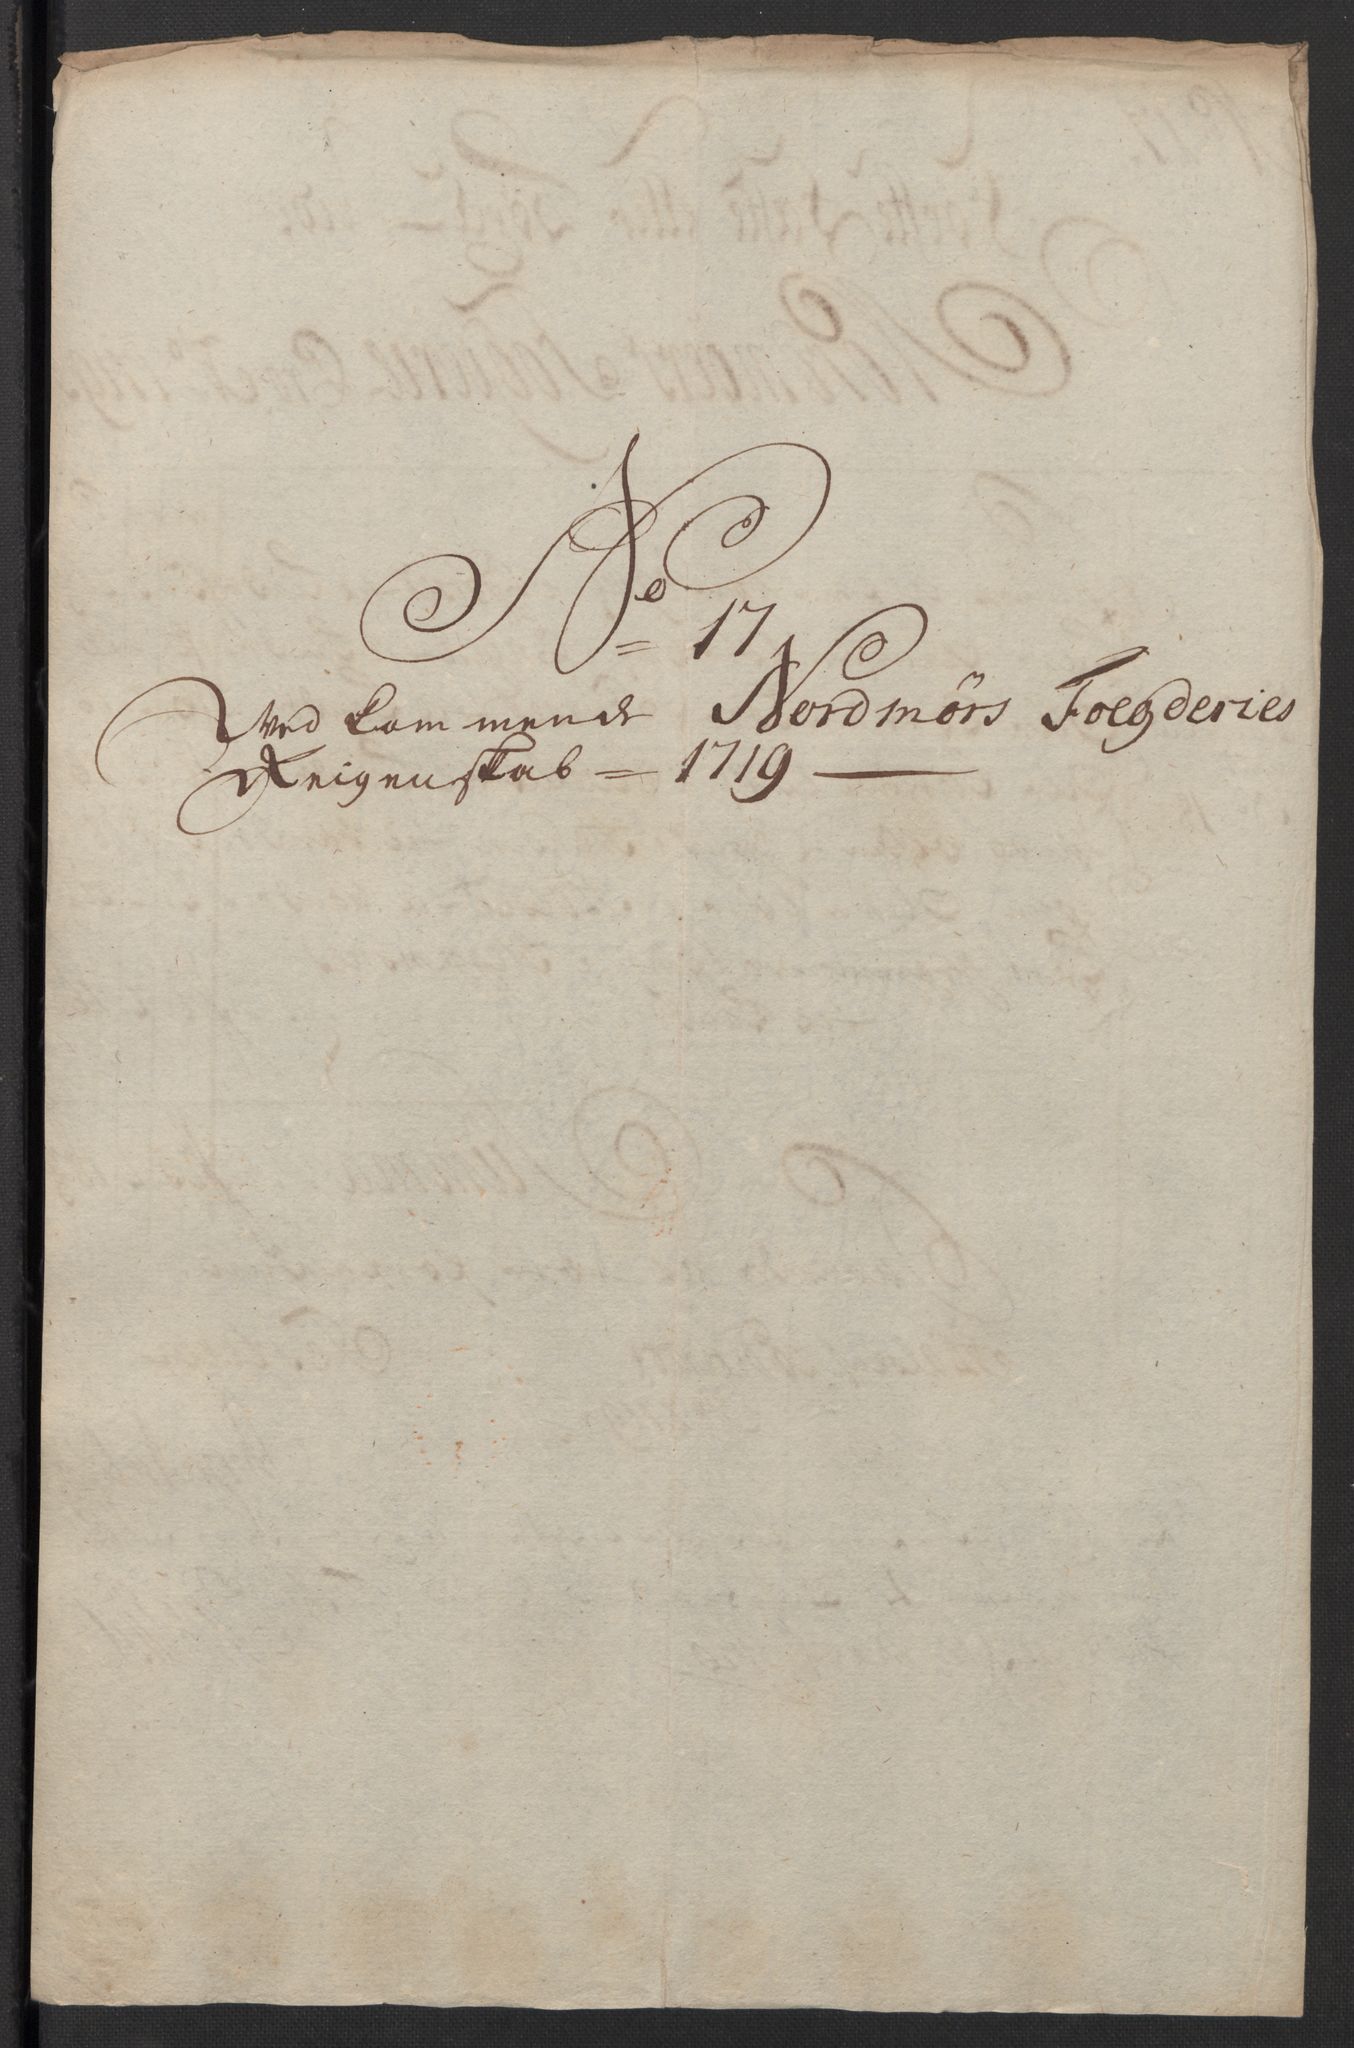 No = 17
Vedkommende Nordmörs Foegderies
Reigenskab = 1719 —